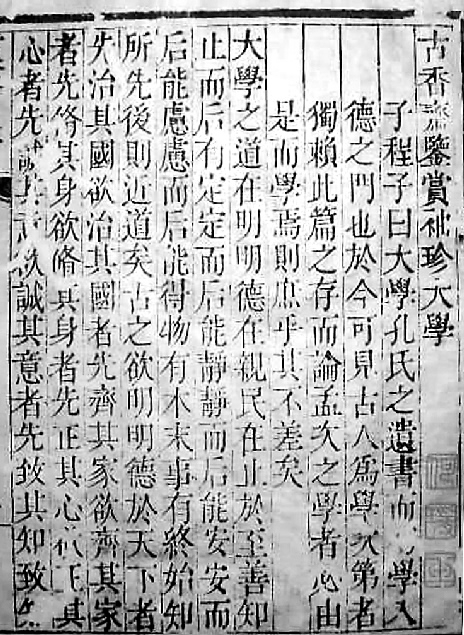 古香齋鑒賞袖珍大學
子程子曰大學孔氏之遺書而 學入
德之門也於今可見古人為學次第者
獨賴此篇之存而論孟次之學者必由
是而學焉則庶乎其不差矣
大學之道在明明德在親民在止於至善知
止而后有定定而后能靜靜而后能安安而
后能慮慮而后能得物有本末事有終始知
所先後則近道矣古之欲明明德於天下者
先治其國欲治其國者先齊其家欲齊其家
者先脩其身欲脩其身者先正其心欲正其
心者先誠其意欲誠其意者先致其知致